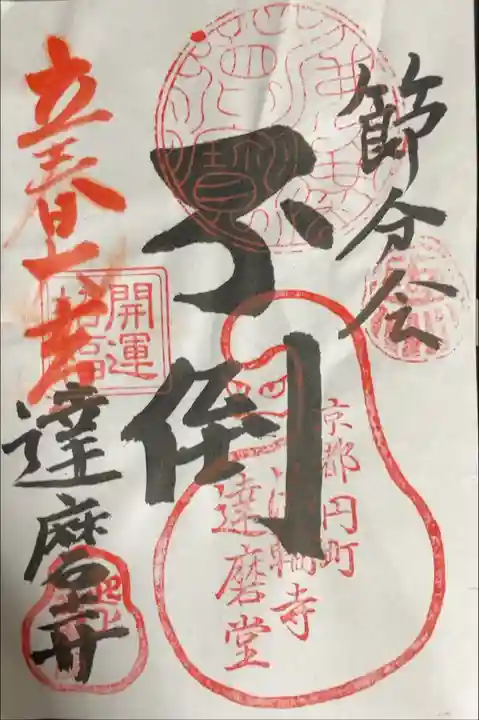 節分会
不倒
京都円町
法輪寺
達磨堂
立春大吉
開運
招福
達磨寺